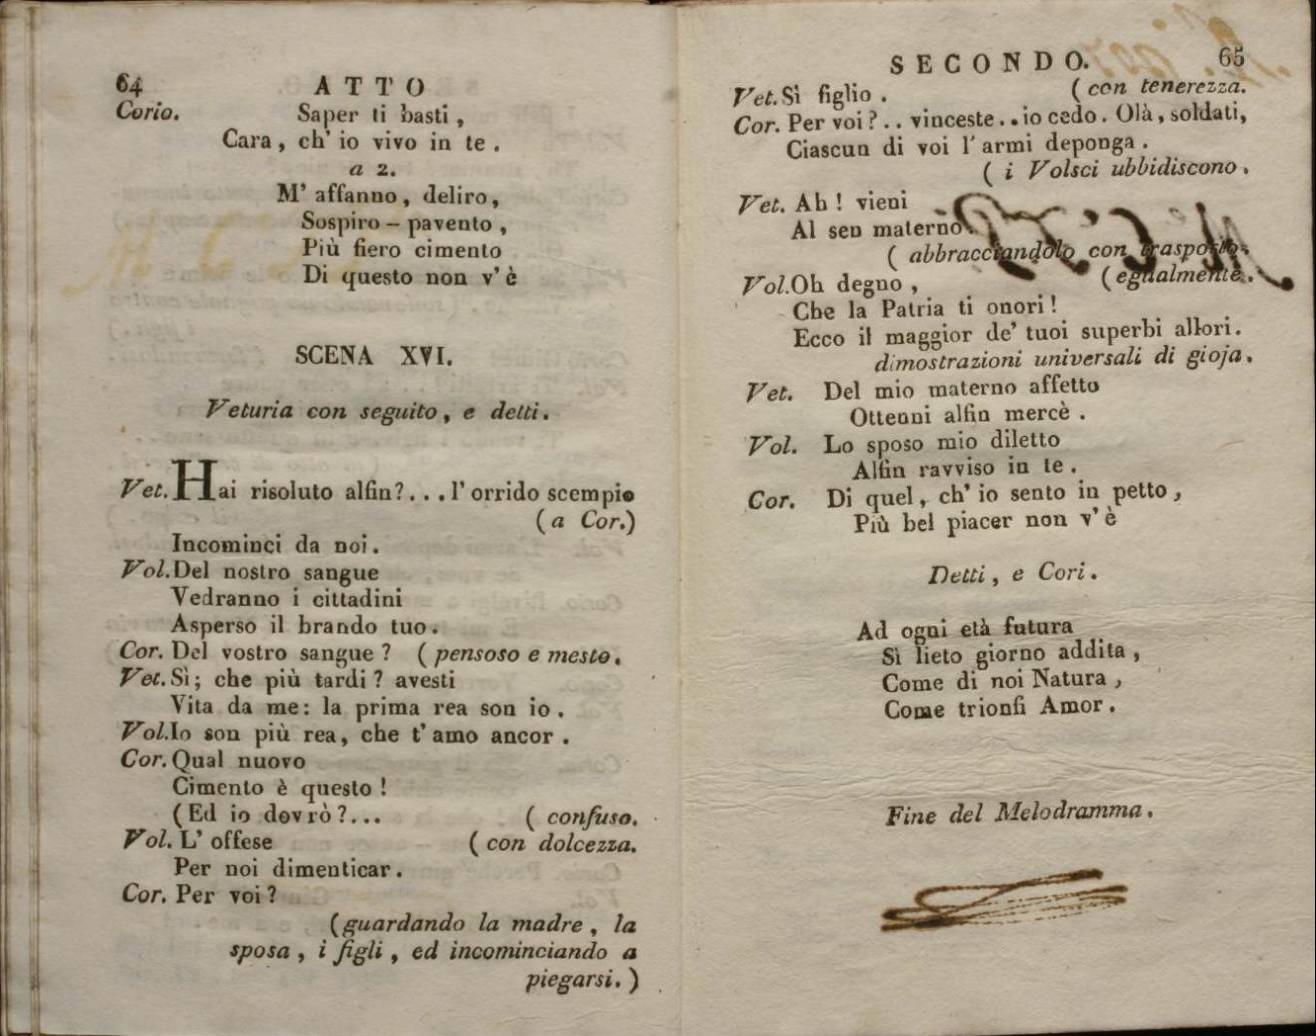 64 ATTO
Corio. Saper ti basti,
Cara, ch' io vivo in te.
a 2.
M' affanno, deliro,
Sospiro – pavento,
Più fiero cimento
Di questo non v' è
SCENA XVI.
Veturia con seguito, e detti.
Vet. Hai risoluto alfin?... l' orrido scempio
(a Cor.)
Incominci da noi.
Vol. Del nostro sangue
Vedranno i cittadini
Asperso il brando tuo.
Cor. Del vostro sangue? (pensoso e mesto.
Vet. Sì; che più tardi? avesti
Vita da me: la prima rea son io.
Vol. Io son più rea, che t' amo ancor.
Cor. Qual nuovo
Cimento è questo!
(Ed io dovrò?... (confuso.
Vol. L' offese (con dolcezza.
Per noi dimenticar.
Cor. Per voi?
(guardando la madre, la
sposa, i figli, ed incominciando a
piegarsi.)
SECONDO. 65
Vet. Sì figlio. (con tenerezza.
Cor. Per voi?.. vinceste.. io cedo. Olà, soldati,
Ciascun di voi l' armi deponga.
(i Volsci ubbidiscono.
Vet. Ah! vieni
Al sen materno.
(abbracciandolo con trasporto.
Vol. Oh degno, (egualmente.
Che la Patria ti onori!
Ecco il maggior de' tuoi superbi allori.
dimostrazioni universali di gioja.
Vet. Del mio materno affetto
Ottenni alfin mercè.
Vol. Lo sposo mio diletto
Alfin ravviso in te.
Cor. Di quel, ch' io sento in petto,
Più bel piacer non v' è
Detti, e Cori.
Ad ogni età futura
Sì lieto giorno addita,
Come di noi Natura,
Come trionfi Amor.
Fine del Melodramma.